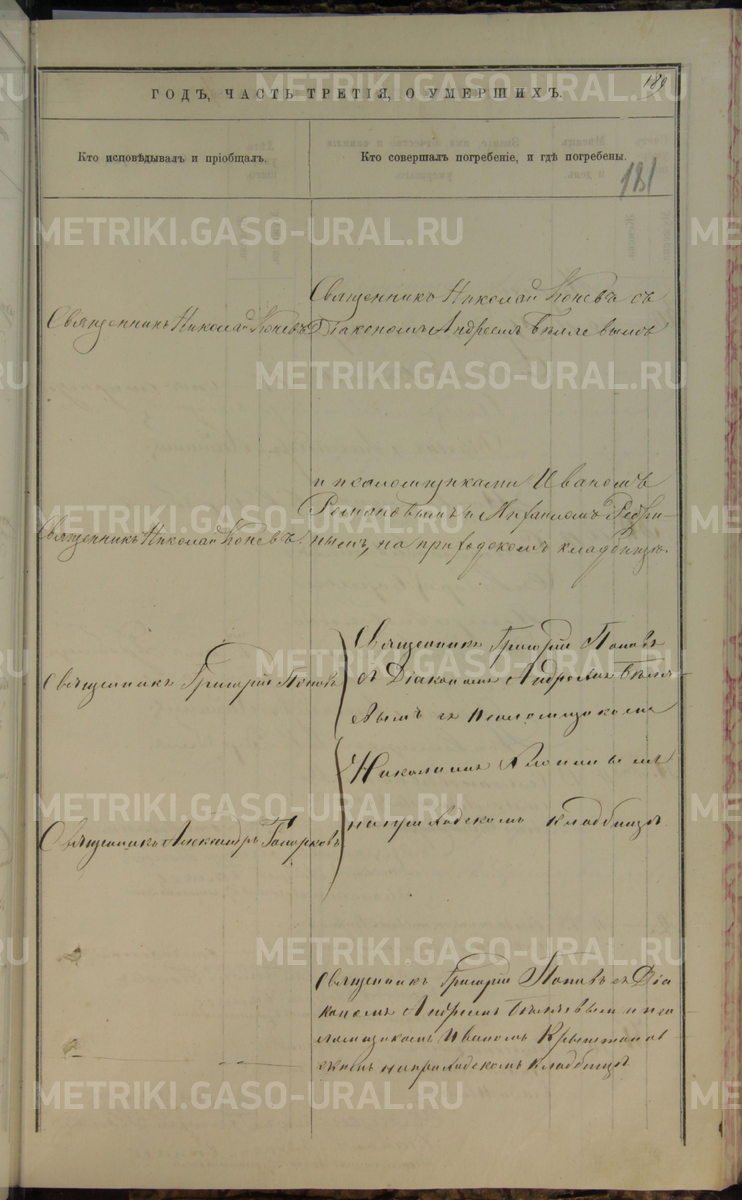 189
ГОДЪ, ЧАСТЬ ТРЕТІЯ, О УМЕРШИХЪ.
Кто исповѣдывалъ и пріобщалъ.
Кто совершалъ погребеніе, и гдѣ погребены.
181
Священникъ Николай Коневъ съ
Священникъ Николай Коневъ
Діакономъ Андреемъ Бѣляевымъ
и псаломщиками Иваномъ
Романовымъ и
Священникъ Николай Коневъ
нымъ, на приходскомъ кладбищѣ.
Священникъ Григорій Поповъ
Священникъ Григорій Поповъ
съ Діакономъ Андреемъ Бѣля-
евымъ и псаломщикомъ
Николаемъ
Священникъ Александръ
на приходскомъ кладбищѣ.
Священникъ Григорій Поповъ и Діа
кономъ Андреемъ Бѣляевым и пса
ломщикомъ Иваномъ
на приходскомъ кладбищѣ
METRIKI.GASO-URAL.RU